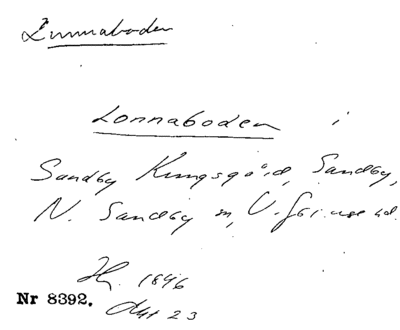 Lunnaboden
Lonnaboden i
Sandby Kungsgård, Sandby,
N. Sandby sn, V. Göinge hd.
Hj. 1846
Nr 8392.
Akt 23